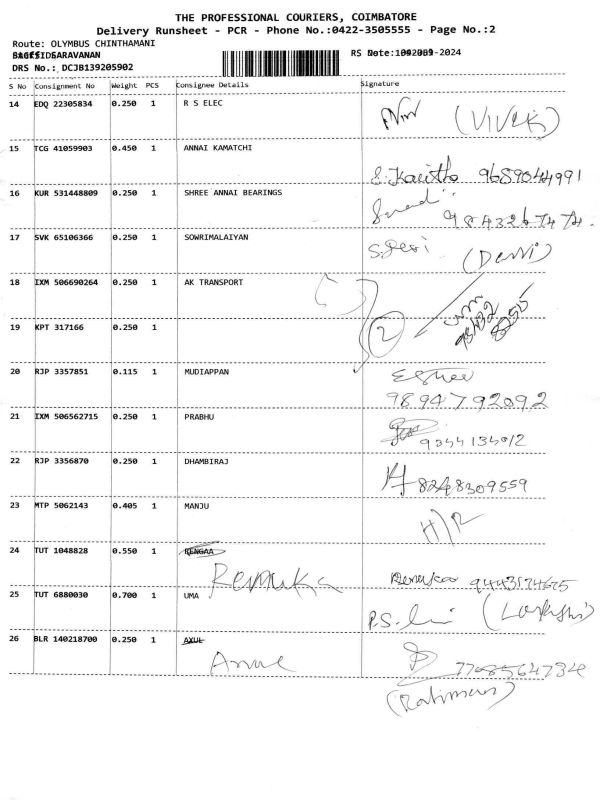 THE PROFESSIONAL COURIERS, COIMBATORE
Delivery Runsheet - PCR - Phone No.:0422-3505555 - Page No.:2
Route: OLYMBUS CHINTHAMANI
SARAVANAN
RS Note:
-2024
DRS No.: DCJB139205902
S No Consignment No Weight PCS Consignee Details Signature
14 EDQ 22305834 0.250 1 R S ELEC (VIVEK)
15 TCG 41059903 0.450 1 ANNAI KAMATCHI
S. Kavitha 9689044991
16 KUR 531448809 0.250 1 SHREE ANNAI BEARINGS
9843267474.
17 SVK 65106366 0.250 1 SOWRIMALAIYAN
(Devi)
18 IXM 506690264 0.250 1 AK TRANSPORT
19 KPT 317166 0.250 1 2
20 RJP 3357851 0.115 1 MUDIAPPAN
9894792092
21 IXM 506562715 0.250 1 PRABHU
22 RJP 3356870 0.250 1 DHAMBIRAJ
8248309559
23 MTP 5062143 0.405 1 MANJU
H/R
24 TUT 1048828 0.550 1 RENGAA
Remuka Renuka
25 TUT 6880030 0.700 1 UMA
26 BLR 140218700 0.250 1 AXUL